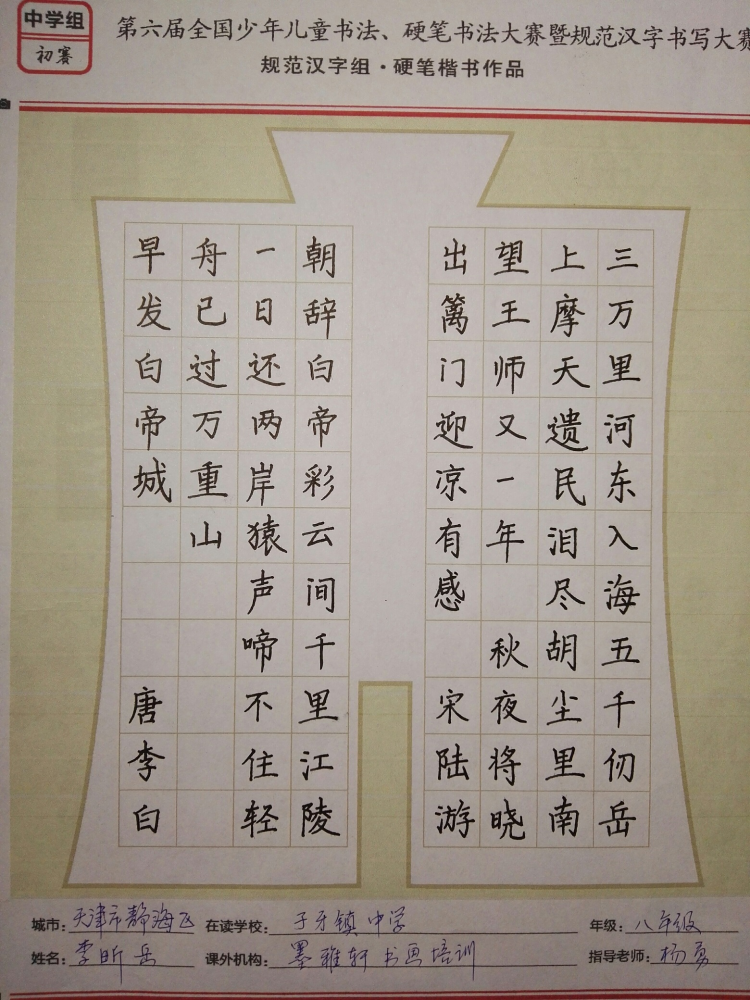 中学组
初赛
第六届全国少年儿童书法、硬笔书法大赛暨规范汉字书写大赛
规范汉字组·硬笔楷书作品
三万里河东入海五千仞岳
上摩天遗民泪尽胡尘里南
望王师又一年 秋夜将晓
出篱门迎凉有感 宋陆游
朝辞白帝彩云间千里江陵
一日还两岸猿声啼不住轻
舟已过万重山
早发白帝城 唐李白
城市：天津市静海区 在读学校：子牙镇中学 年级：八年级
姓名：李昕岳 课外机构：墨雅轩书画培训 指导老师：杨勇